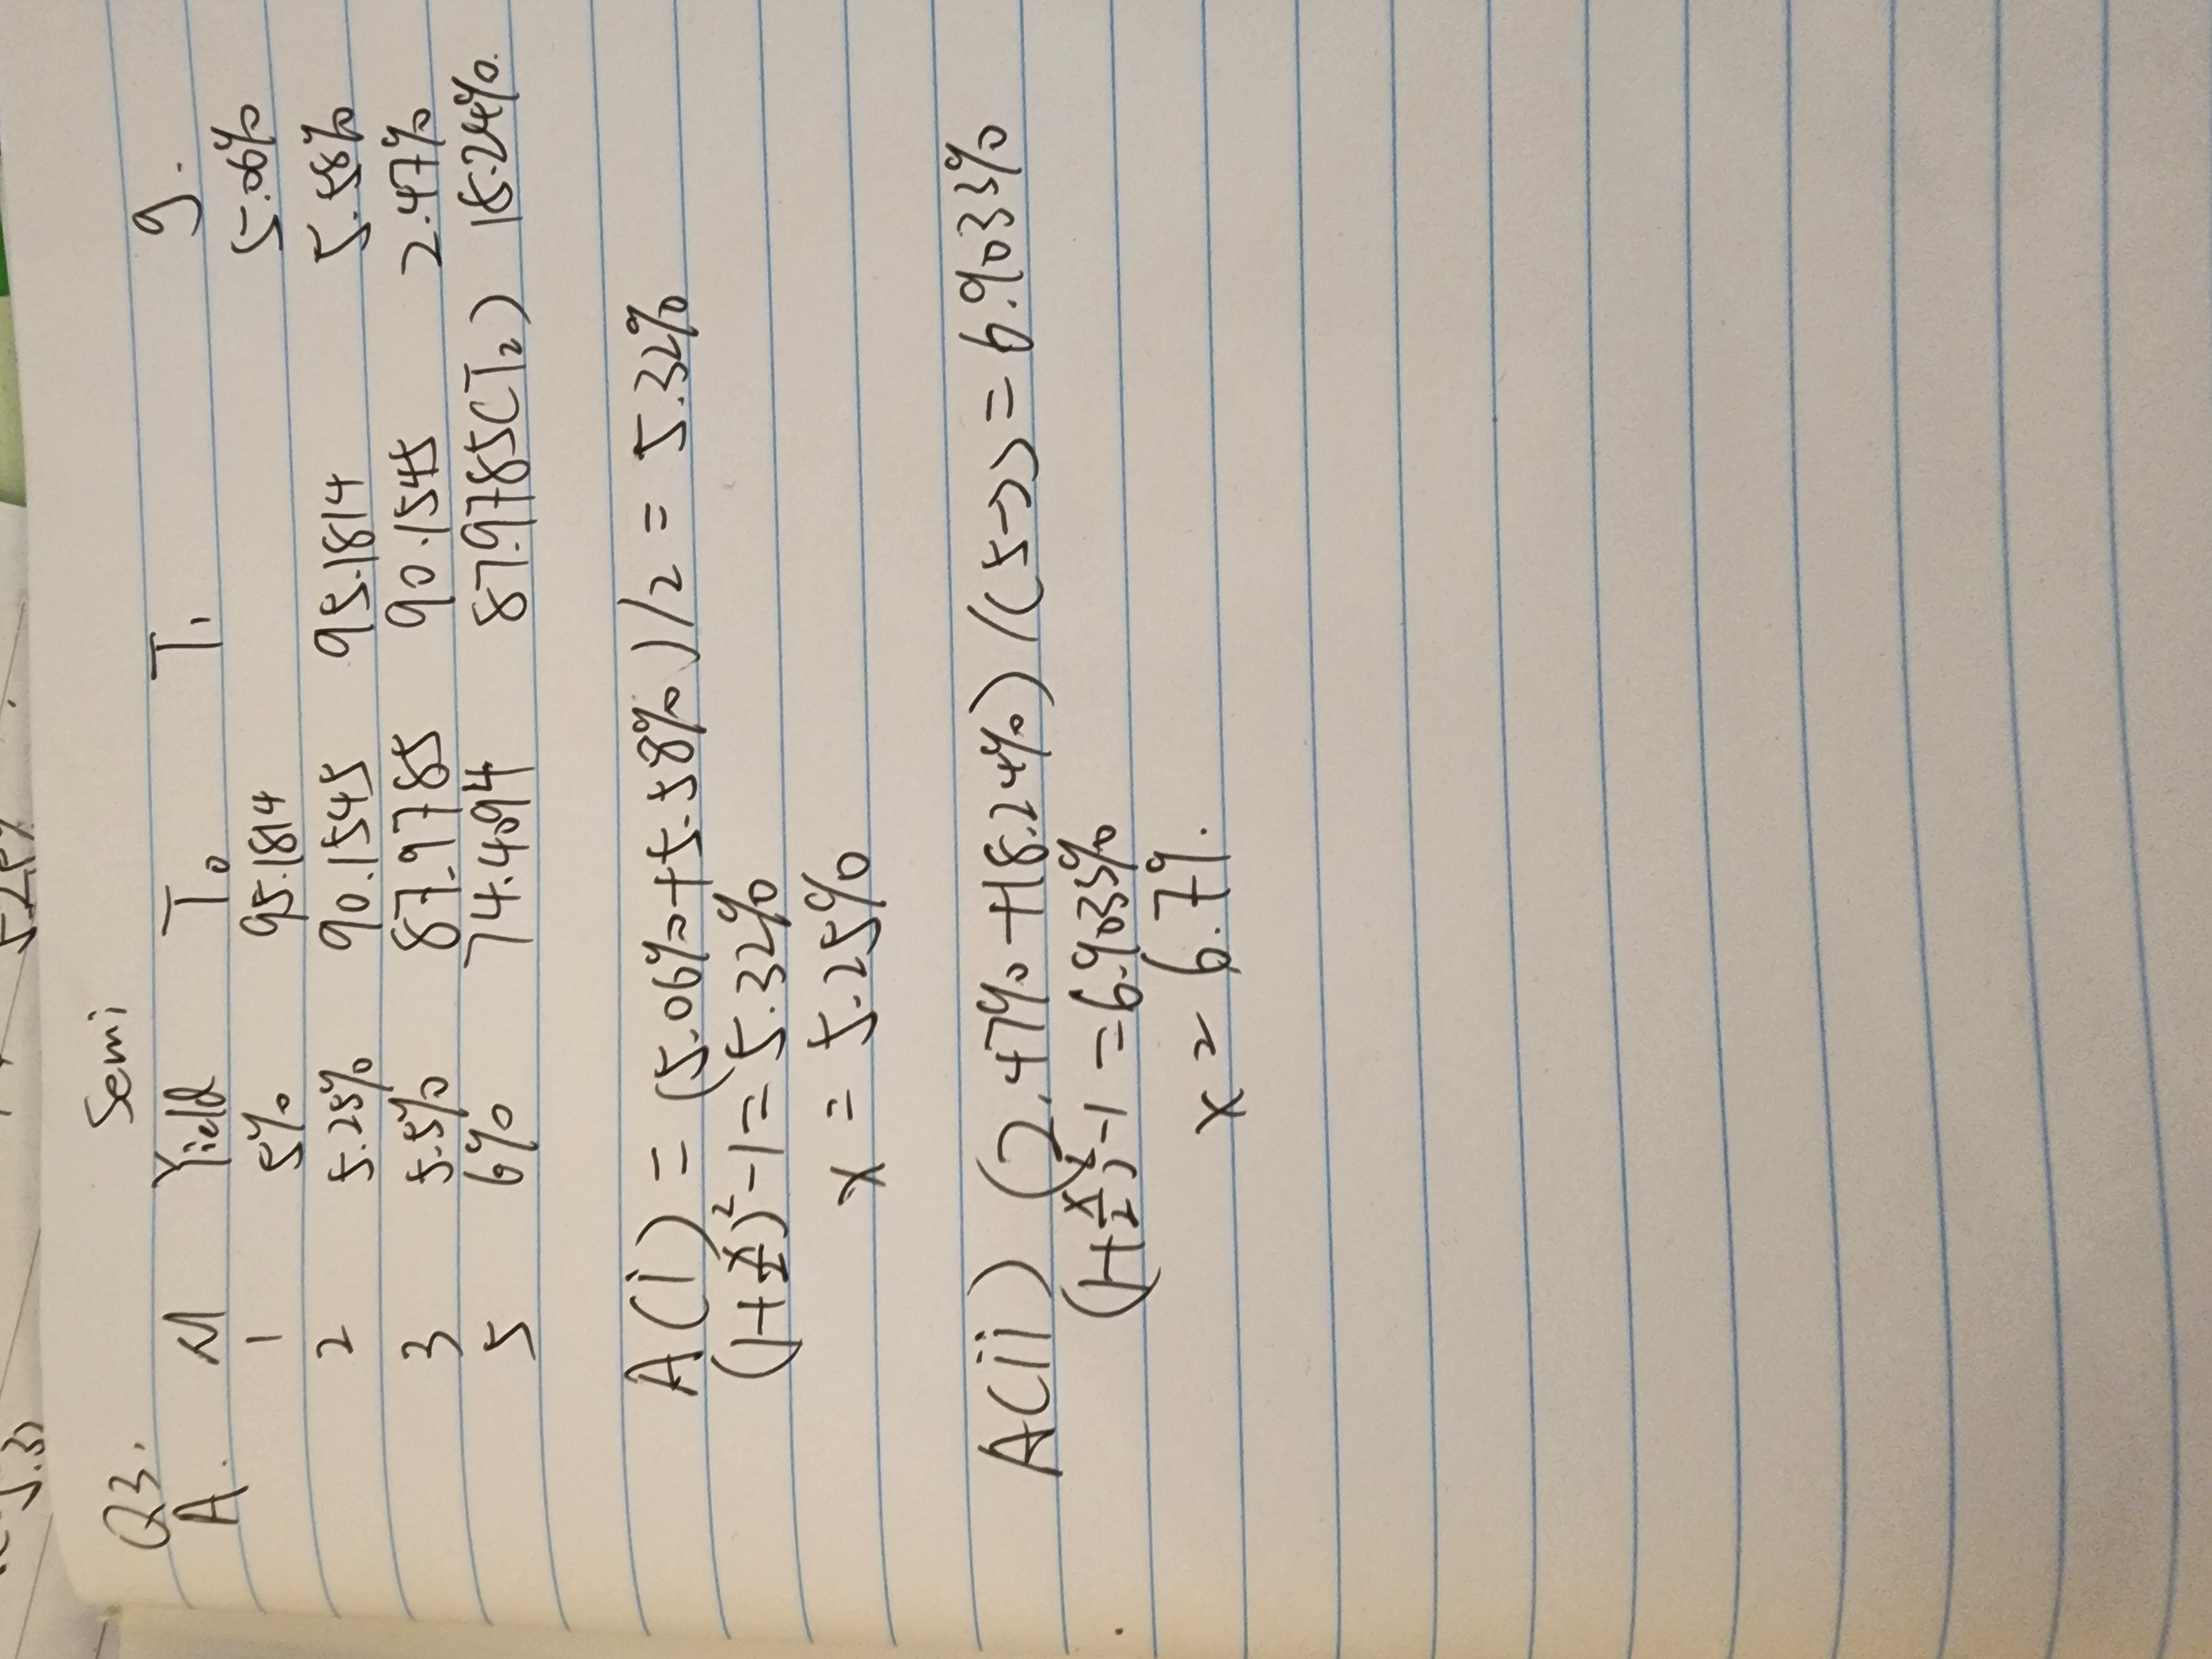 Q3. Semi
A. M Yield T₀ T₁ g.
1 5% 95.1814 5.06%
2 5.25% 90.1545 95.1814 5.58%
3 5.5% 87.9785 90.1545 2.47%
5 6% 74.4094 87.9785(T₂) 18.24%
A(i) = (5.06%+5.58%)/2 = 5.32%
(1+x/2)²-1 = 5.32%
x = 5.25%
A(ii) (2.47%+18.24%)/(5-2) = 6.9033%
(1+x/2)²-1 = 6.9033%
x = 6.79%